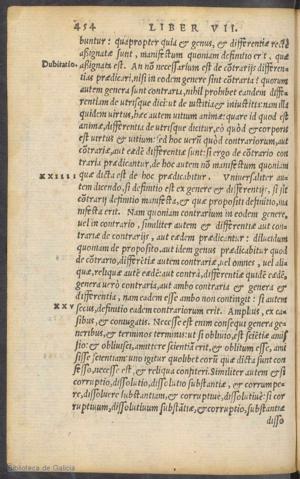 454 LIBER VII.
buntur: quapropter quia & genus, & differentiæ recte
aßignatæ sunt, manifestum quoniam definitio erit, quæ
Dubitatio. aßignata est. An nō necessarium est de cōtrarijs differen-
tias prædicari, nisi in eodem genere sint cōtraria? quorum
autem genera sunt contraria, nihil prohibet eandem diffe-
rentiam de utrisque dici: ut de iustitia & iniustitia: nam illa
quidem uirtus, hæc autem uitium animæ: quare id quod est
animæ, differentia de utrisque dicitur, eò quòd & corporis
est uirtus & uitium: sed hoc uerū quòd contrariorum, aut
cōtrariæ, aut eædē differentiæ sunt: si ergo de cōtrario con
traria prædicantur, de hoc autem nō manifestum quoniam
XXIIII quæ dicta est de hoc prædicabitur. Vniuersaliter au-
tem dicendo, si definitio est ex genere & differentijs, si sit
cōtrarij definitio manifesta, & quæ propositi definitio, ma
nifesta erit. Nam quoniam contrarium in eodem genere,
uel in contrario, similiter autem & differentiæ aut con-
trariæ de contrarijs, aut eædem prædicantur: dilucidum
quoniam de proposito, aut idem genus prædicabitur quod
de cōtrario, differētiæ autem contrariæ, uel omnes, uel ali-
quæ, reliquæ autē eædē: aut contrà, differētiæ quidē eædē,
genera uerò contraria, aut ambo contraria & genera &
differentia, nam eadem esse ambo non contingit: si autem
XXV secus, definitio eadem contrariorum erit. Amplius, ex ca-
sibus, & coniugatis. Necesse est enim consequi genera ge-
neribus, & terminos terminis: ut si obliuio, est sciētiæ amis
sio: & obliuisci, amittere scientiā erit, & oblitum esse, ami
sisse scientiam: uno igitur quolibet eorū quæ dicta sunt con
fesso, necesse est, & reliqua confiteri. Similiter autem & si
corruptio, dissolutio, dissolutio substantiæ, & corrumpe-
re, dissoluere substantiam, & corruptiuè, dissolutiuè: si cor
ruptiuum, dissolutiuum substātiæ, & corruptio, substantiæ
disso
Biblioteca de Galicia